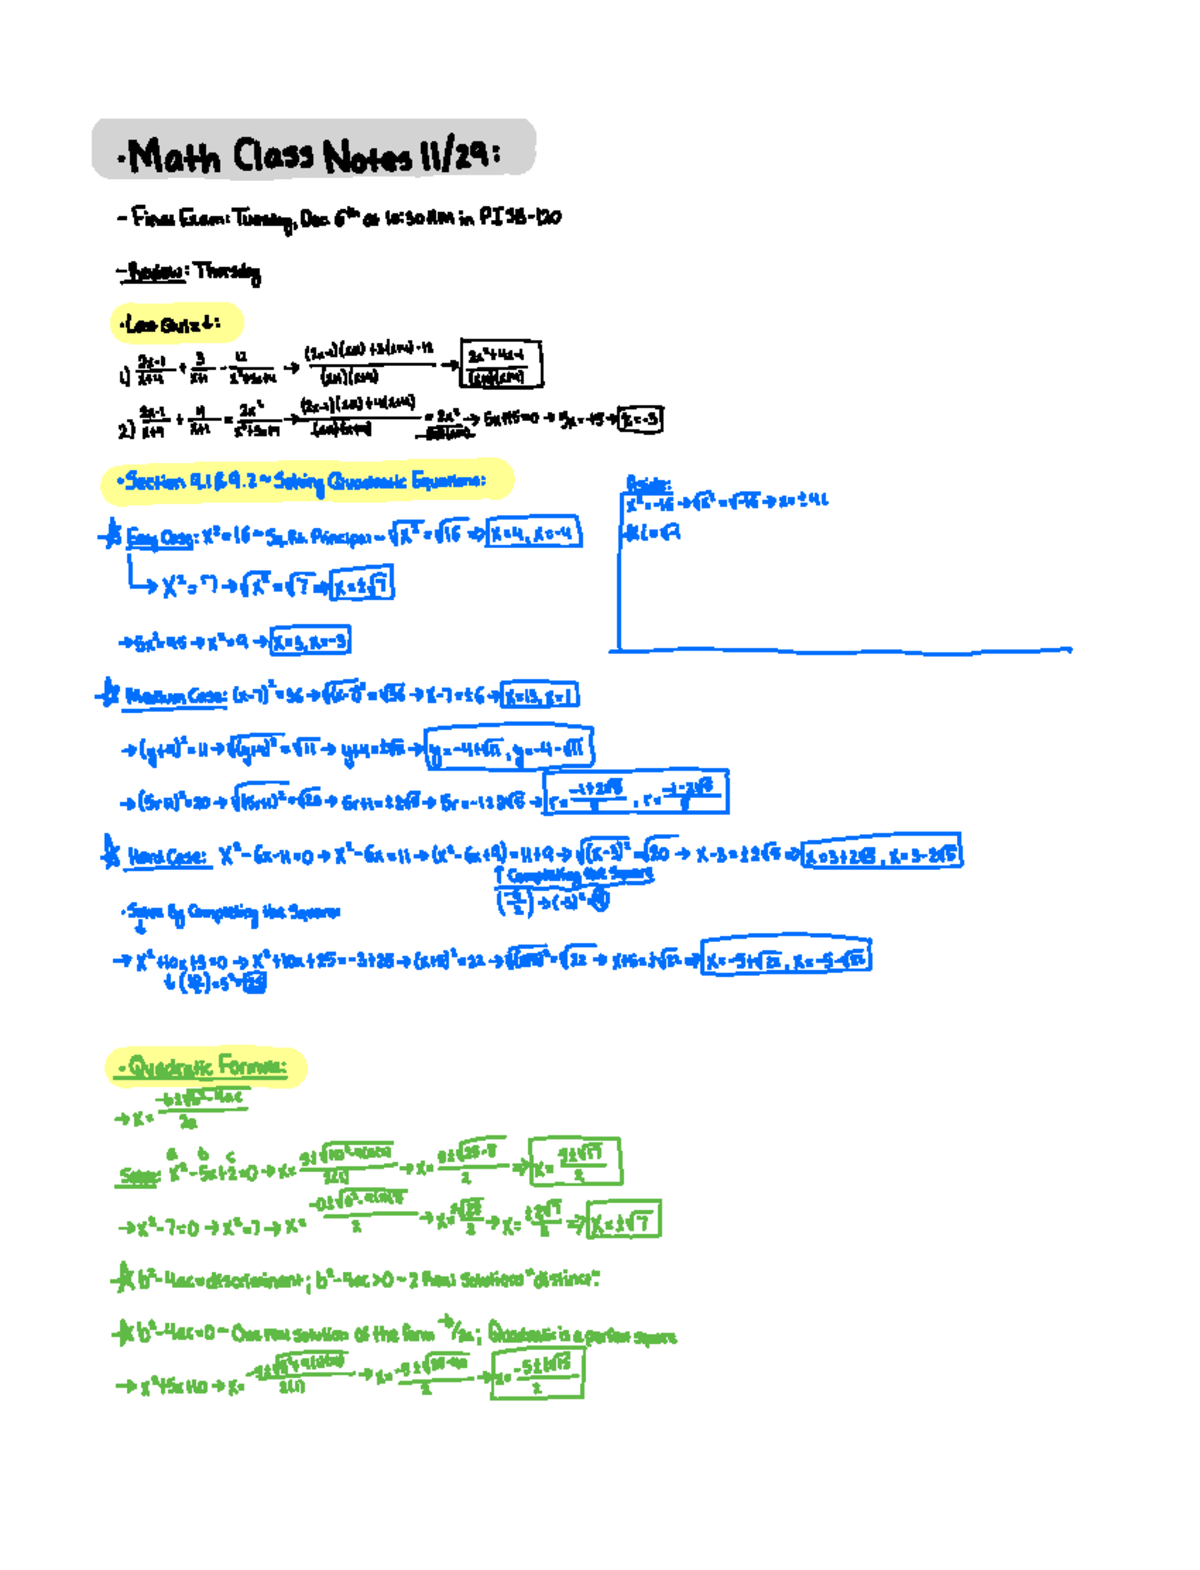 ·Math Class Notes 11/29:
- Final Exam: Tuesday, Dec 6th at 10:30AM in PISB-120
- Review: Thursday
·Last Quiz ↓:
1) (2x-1)/(x+4) + 3/(x+1) - 12/(x²+5x+4) → ((2x-1)(x+1)+3(x+4)-12)/((x+1)(x+4)) → (2x²+4x-1)/((x+1)(x+4))
2) → 5x+15=0 → 5x=-15 → x=-3
·Section 9.1 & 9.2 ~ Solving Quadratic Equations:
Aside:
x²=-16 → √x²=√-16 → x=±4i
Easy Case: x²=16 ~ Sq. Rt. Principal ~ √x²=√16 ⇒ x=4, x=-4
→ x²=7 → √x²=√7 ⇒ x=±√7
→ 5x²=45 → x²=9 → x=3, x=-3
Medium Case: (x-7)²=36 → √(x-7)²=√36 → x-7=±6 → x=13, x=1
→ (y+4)²=11 → √(y+4)²=√11 → y+4=±√11 → y=-4+√11, y=-4-√11
→ (5r+1)²=20 → √(5r+1)²=√20 → 5r+1=±2√5 → 5r=-1±2√5 → r=(-1+2√5)/5, r=(-1-2√5)/5
Hard Case: x²-6x-11=0 → x²-6x=11 → (x²-6x+9)=11+9 → √(x-3)²=√20 → x-3=±2√5 ⇒ x=3+2√5, x=3-2√5
↑ Completing the Square
(-6/2) → (-3)²=9
·Solve By Completing the Square
↓
→ x²+10x+3=0 → x²+10x+25=-3+25 → (x+5)²=22 → √(x+5)²=√22 → x+5=±√22 ⇒ x=-5+√22, x=-5-√22
↓ (10/2)=5²=25
·Quadratic Formula:
→ x=(-b±√b²-4ac)/2a
a b c
Solve: x²-5x+2=0 → x= → x=(5±√25-8)/2 ⇒ x=(5±√17)/2
→ x²-7=0 → x²=7 → x= → x=±√28/2 → x=±2√7/2 ⇒ x=±√7
b²-4ac=discriminant; b²-4ac>0 ~ 2 Real Solutions "distinct".
b²-4ac=0 ~ One real solution of the form -b/2a; Quadratic is a perfect square